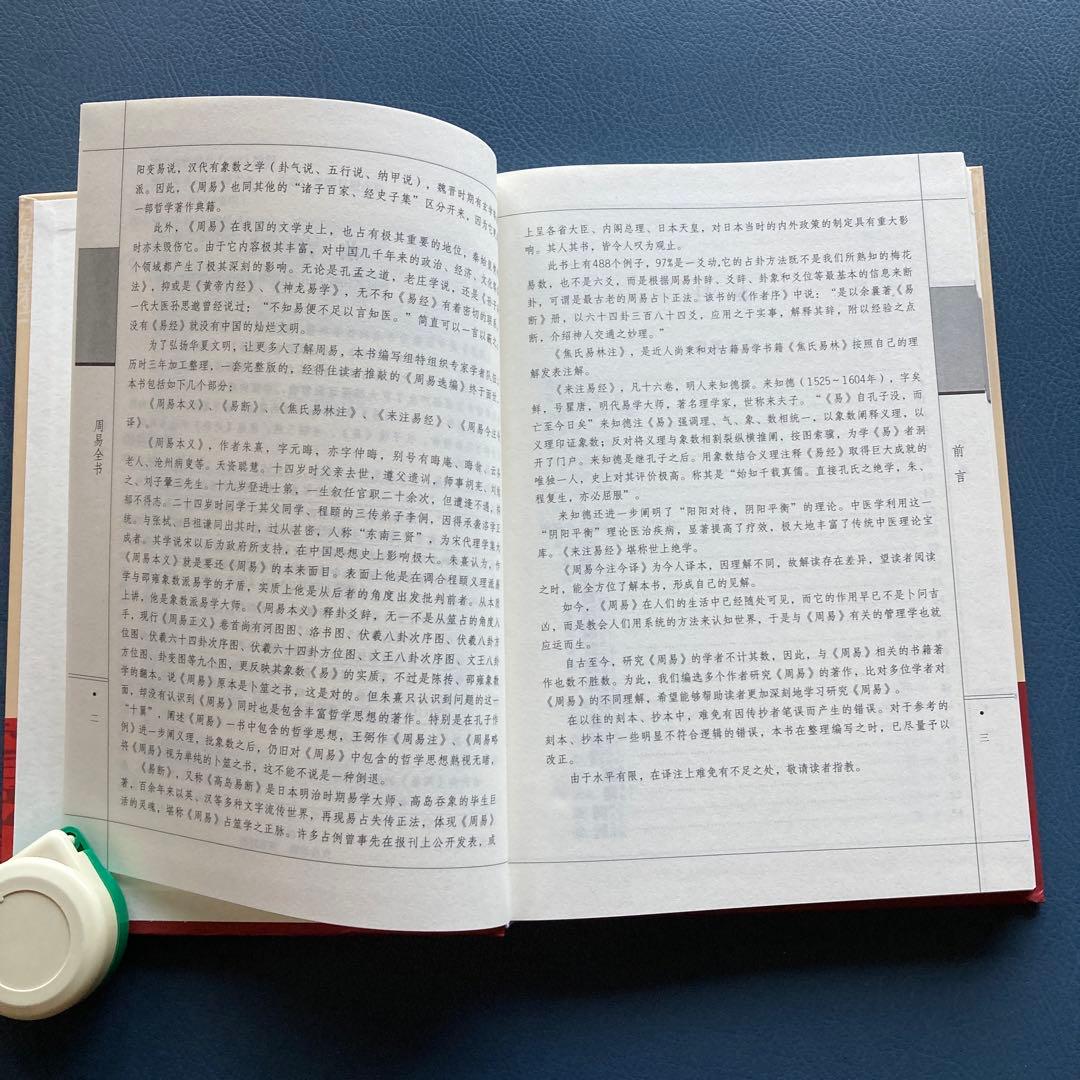 阳变易说，汉代有象数之学（卦气说、五行说、纳甲说），魏晋时期有玄学
派。因此，《周易》也同其他的“诸子百家、经史子集”区分开来，因为它
一部哲学著作典籍。
此外，《周易》在我国的文学史上，也占有极其重要的地位，秦始皇
时亦未毁伤它。由于它内容极其丰富，对中国几千年来的政治、经济、文化
个领域都产生了极其深刻的影响。无论是孔孟之道，老庄学说，还是《孙子
法》，抑或是《黄帝内经》、《神龙易学》，无不和《易经》有着密切的联系
一代大医孙思邈曾经说过：“不知易便不足以言知医。”简直可以一言以蔽之
没有《易经》就没有中国的灿烂文明。
为了弘扬华夏文明，让更多人了解周易，本书编写组特组织专家学者队伍
历时三年加工整理，一套完整版的，经得住读者推敲的《周易选编》终于面世
本书包括如下几个部分：
《周易本义》、《易断》、《焦氏易林注》、《来注易经》、《周易今注今
译》。
《周易本义》，作者朱熹，字元晦，亦字仲晦，别号有晦庵、晦翁、云谷
老人、沧州病叟等。天资聪慧。十四岁时父亲去世，遵父遗训，师事胡宪、刘勉
之、刘子翚三先生。十九岁登进士第，一生叙任官职二十余次，但遭逢不遇，
郁不得志。二十四岁时问学于其父同学、程颐的三传弟子李侗，因得承袭洛学正
统。与张栻、吕祖谦同出其时，过从甚密，人称“东南三贤”，为宋代理学集大
成者。其学说宋以后为政府所支持，在中国思想史上影响极大。朱熹认为，作
《周易本义》就是要还《周易》的本来面目。表面上他是在调合程颐义理派易
学与邵雍象数派易学的矛盾，实质上他是从后者的角度出发批判前者。从本质
上讲，他是象数派易学大师。《周易本义》释卦爻辞，无一不是从筮占的角度入
手，现行《周易正义》卷首尚有河图图、洛书图、伏羲八卦次序图、伏羲八卦方
位图、伏羲六十四卦次序图、伏羲六十四卦方位图、文王八卦次序图、文王八卦
方位图、卦变图等九个图，更反映其象数《易》的实质，不过是陈抟、邵雍象数
学的翻本。说《周易》原本是卜筮之书，这是对的。但朱熹只认识到问题的这一
面，却没有认识到《周易》同时也是包含丰富哲学思想的著作。特别是在孔子作
“十翼”，阐述《周易》一书中包含的哲学思想，王弼作《周易注》、《周易略
例》进一步阐义理，批象数之后，仍旧对《周易》中包含的哲学思想熟视无睹，
将《周易》视为单纯的卜筮之书，这不能不说是一种倒退。
《易断》，又称《高岛易断》是日本明治时期易学大师、高岛吞象的毕生巨
著，百余年来以英、汉等多种文字流传世界，再现易占失传正法，体现《周易》
活的灵魂，堪称《周易》占筮学之正脉。许多占例曾事先在报刊上公开发表，或
周易全书
二
上呈各省大臣、内阁总理、日本天皇，对日本当时的内外政策的制定具有重大影
响。其人其书，皆令人叹为观止。
此书上有488个例子，97%是一爻动，它的占卦方法既不是我们所熟知的梅花
易数，也不是六爻，而是根据周易卦辞、爻辞、卦象和爻位等最基本的信息来断
卦，可谓是最古老的周易占卜正法。该书的《作者序》中说：“是以余曩著《易
断》册，以六十四卦三百八十四爻，应用之于实事，解释其辞，附以经验之点
断，介绍神人交通之妙理。”
《焦氏易林注》，是近人尚秉和对古籍易学书籍《焦氏易林》按照自己的理
解发表注解。
《来注易经》，凡十六卷，明人来知德撰。来知德（1525~1604年），字矣
鲜，号瞿唐，明代易学大师，著名理学家，世称来夫子。“《易》自孔子没，而
亡至今日矣”来知德注《易》强调理、气、象、数相统一，以象数阐释义理，以
义理印证象数；反对将义理与象数相割裂纵横推阐，按图索骥，为学《易》者洞
开了门户。来知德是继孔子之后。用象数结合义理注释《易经》取得巨大成就的
唯独一人，史上对其评价极高。称其是“始知千载真儒。直接孔氏之绝学，朱、
程复生，亦必屈服”。
来知德还进一步阐明了“阳阳对待，阴阳平衡”的理论。中医学利用这一
“阴阳平衡”理论医治疾病，显著提高了疗效，极大地丰富了传统中医理论宝
库。《来注易经》堪称世上绝学。
《周易今注今译》为今人译本，因理解不同，故解读存在差异，望读者阅读
之时，能全方位了解本书，形成自己的见解。
如今，《周易》在人们的生活中已经随处可见，而它的作用早已不是卜问吉
凶，而是教会人们用系统的方法来认知世界，于是与《周易》有关的管理学也就
应运而生。
自古至今，研究《周易》的学者不计其数，因此，与《周易》相关的书籍著
作也数不胜数。为此，我们编选多个作者研究《周易》的著作，比对多位学者对
《周易》的不同理解，希望能够帮助读者更加深刻地学习研究《周易》。
在以往的刻本、抄本中，难免有因传抄者笔误而产生的错误。对于参考的
刻本、抄本中一些明显不符合逻辑的错误，本书在整理编写之时，已尽量予以
改正。
由于水平有限，在译注上难免有不足之处，敬请读者指教。
前言
三